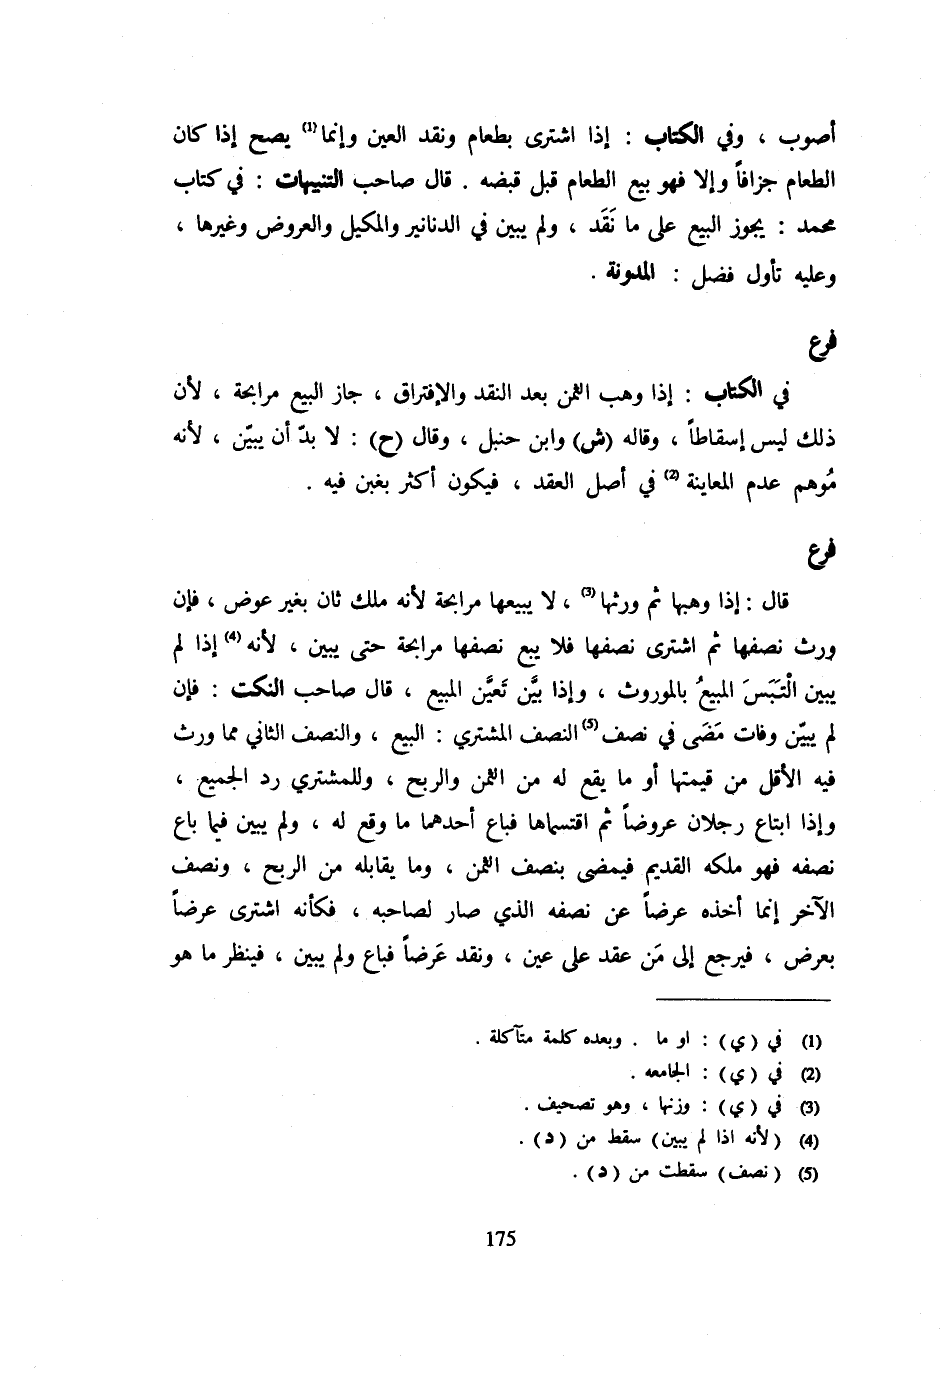 أصوب ، وفي الكتاب : إذا اشترى بطعام ونقد العين وإنما(1) يصح إذا كان
الطعام جزافاً وإلا فهو بيع الطعام قبل قبضه . قال صاحب التنبيهات : في كتاب
محمد : يجوز البيع على ما نَقَد ، ولم يبين في الدنانير والمكيل والعروض وغيرها ،
وعليه تأول فضل : المدونة .
فرع
في الكتاب : إذا وهب الثمن بعد النقد والإفتراق ، جاز البيع مرابحة ، لأن
ذلك ليس إسقاطاً ، وقاله (ش) وابن حنبل ، وقال (ح) : لا بدّ أن يبيّن ، لأنه
مُوهم عدم المعاينة (2) في أصل العقد ، فيكون أكثر بغبن فيه .
فرع
قال : إذا وهبها ثم ورثها(3) ، لا يبيعها مرابحة لأنه ملك ثان بغير عوض ، فإن
ورث نصفها ثم اشترى نصفها فلا يبع نصفها مرابحة حتى يبين ، لأنه (4) إذا لم
يبين الْتَبَسَ المبيعُ بالموروث ، وإذا بيَّن تَعيَّن المبيع ، قال صاحب النكت : فإن
لم يبيّن وفات مَضَى في نصف (5) النصف المشتري : البيع ، والنصف الثاني مما ورث
فيه الأقل من قيمتها أو ما يقع له من الثمن والربح ، وللمشتري رد الجميع ،
وإذا ابتاع رجلان عروضاً ثم اقتسماها فباع أحدهما ما وقع له ، ولم يبين فيما باع
نصفه فهو ملكه القديم فيمضى بنصف الثمن ، وما يقابله من الربح ، ونصف
الآخر إنما أخذه عرضاً عن نصفه الذي صار لصاحبه ، فكأنه اشترى عرضاً
بعرض ، فيرجع إلى مَن عقد على عين ، ونقد عَرضاً فباع ولم يبين ، فينظر ما هو
(1) في (ي) : او ما . وبعده كلمة متآكلة .
(2) في (ي) : الجامعه .
(3) في (ي) : وزنها ، وهو تصحيف .
(4) (لأنه اذا لم يبين) سقط من (د) .
(5) (نصف) سقطت من (د) .
175